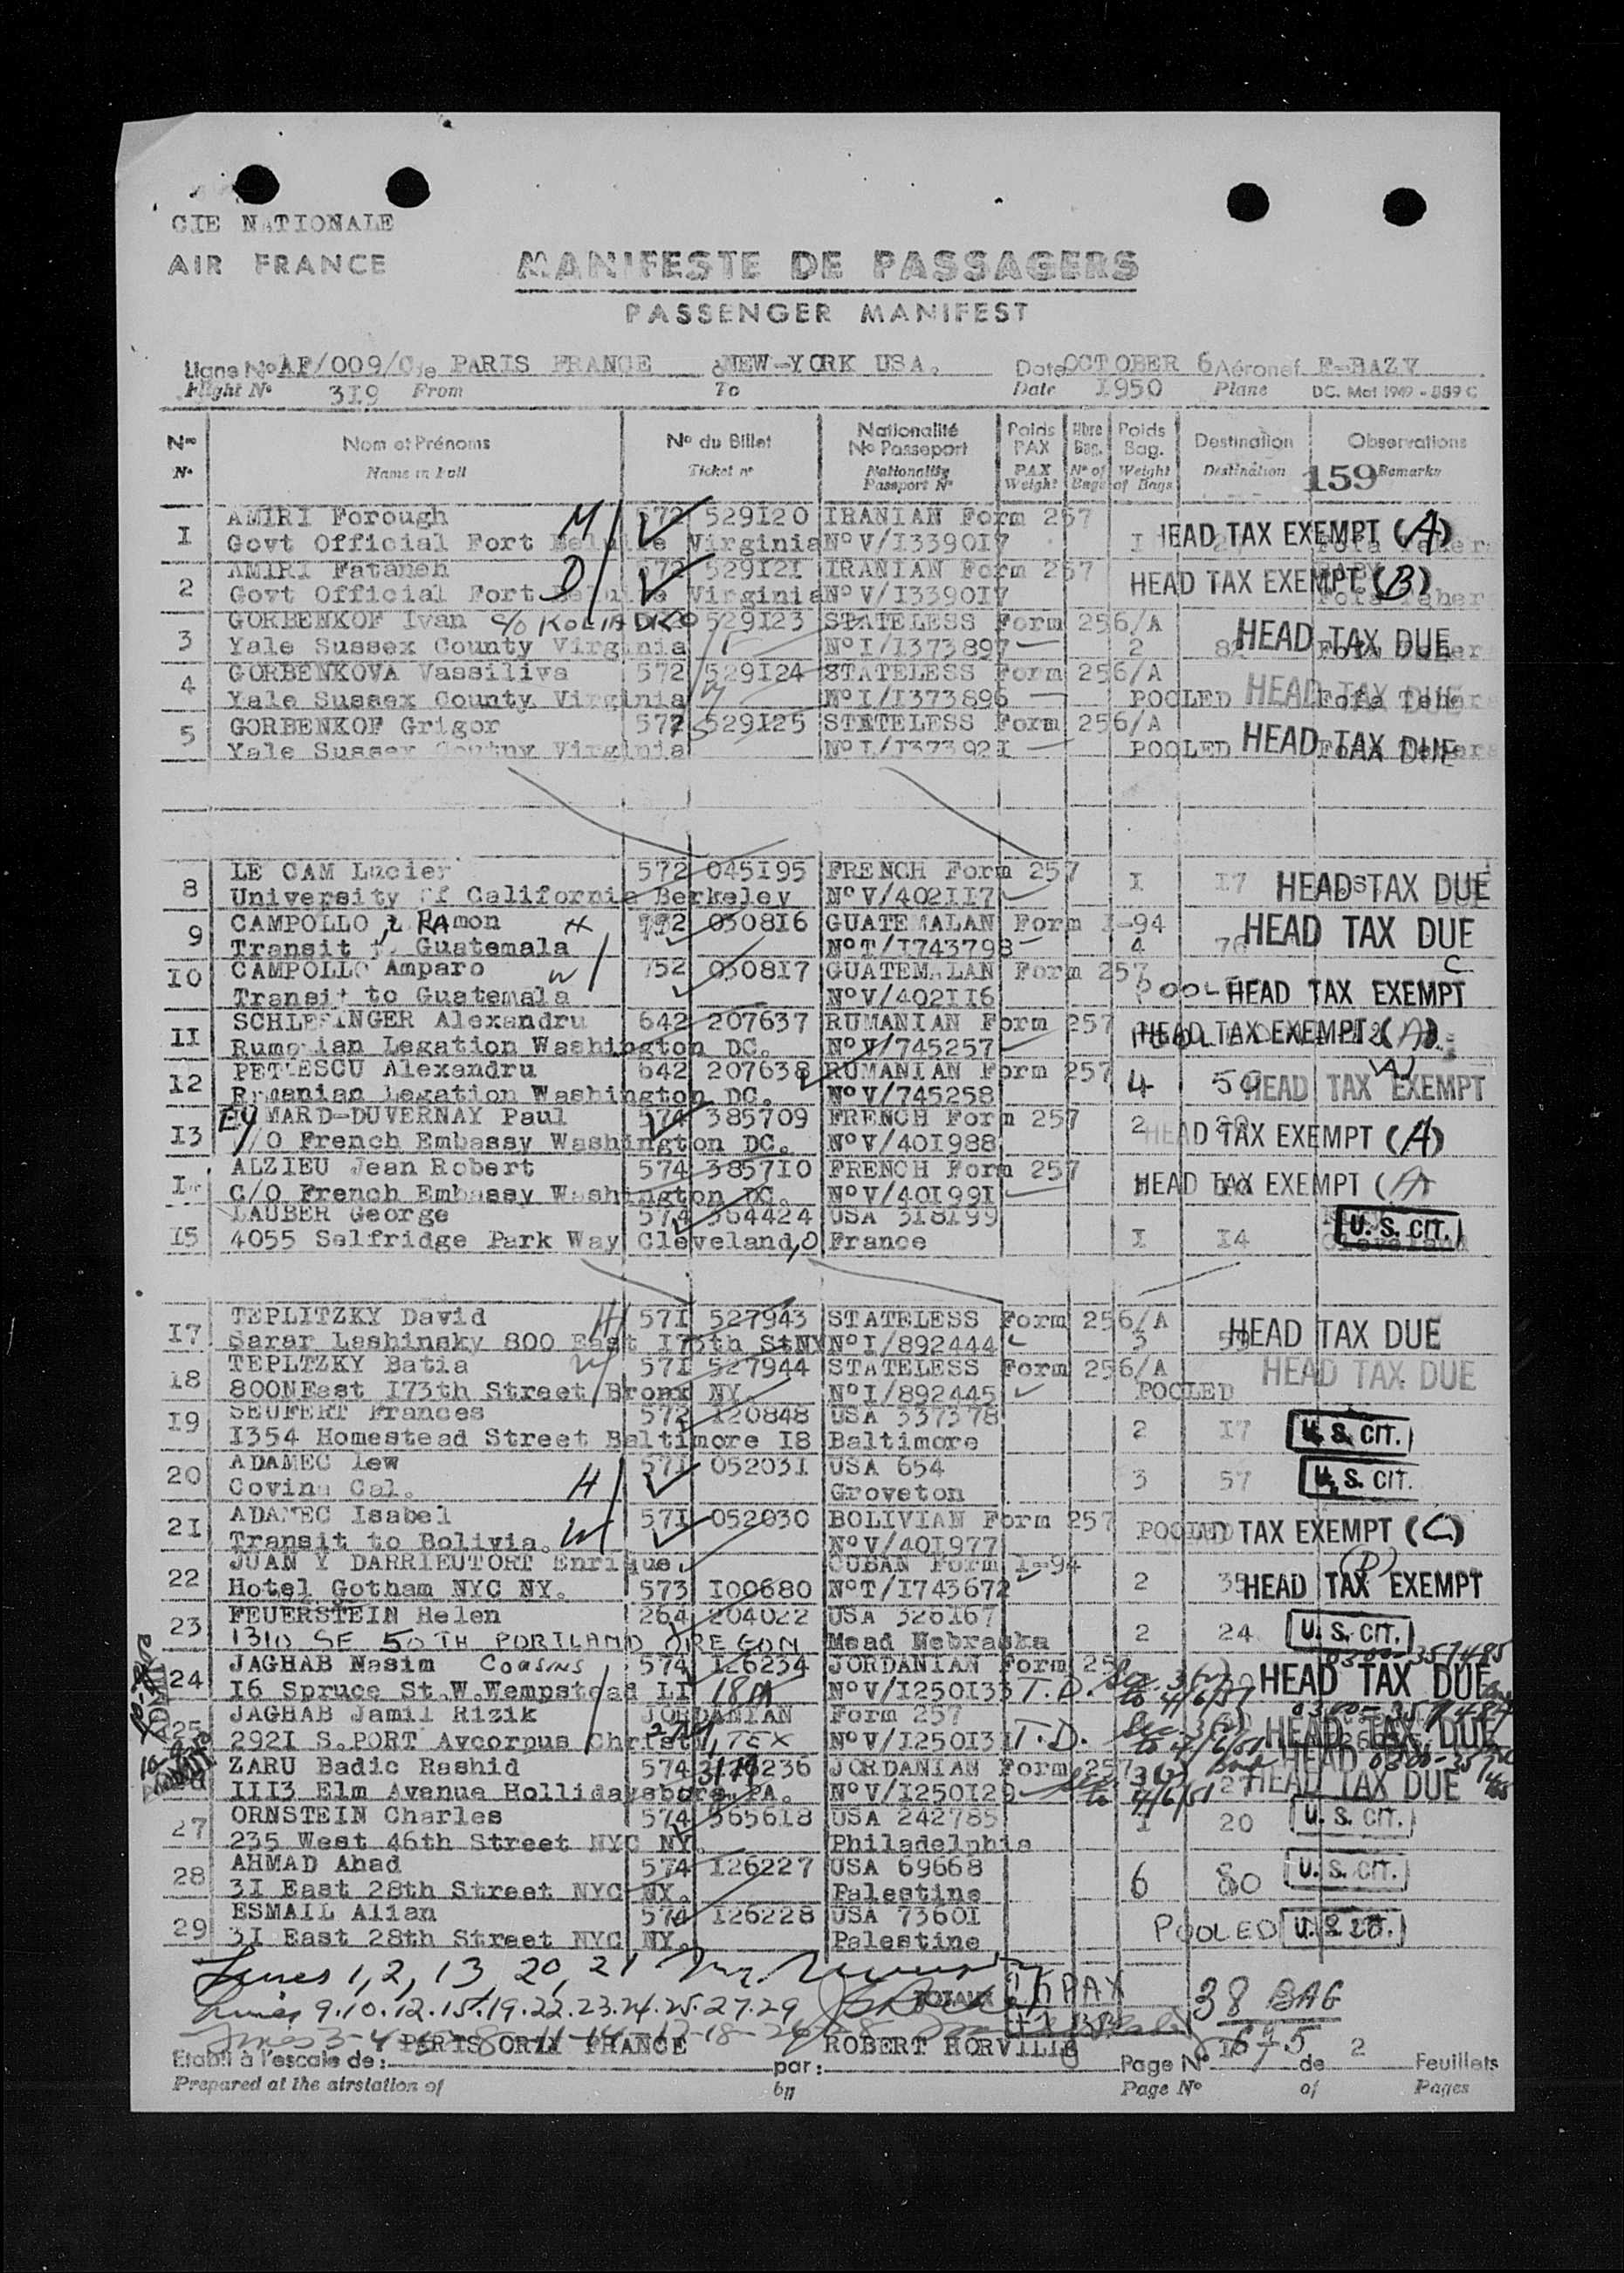 CIE NATIONALE
AIR FRANCE
MANIFESTE DE PASSAGERS
PASSENGER MANIFEST
Ligne No AF/009/C de PARIS FRANCE à NEW-YORK USA. Date OCTOBER 6 Aéronef F-BAZV
Flight No 3I9 From To Date I950 Plane DC. Mat 1949 - 889 C
Nos Nom et Prénoms No du Billet Nationalité No Passeport Poids PAX Nbre Bag. Poids Bag. Destination Observations
No Name in Full Ticket no Nationality Passport No PAX Weight No of Bags Weight of Bags Destination 159 Remarks
I AMIRI Forough M 572 529I20 IRANIAN Form 257
Govt Official Fort Virginia No V/I3390I7 I HEAD TAX EXEMPT (A)
2 AMIRI Fataneh D 572 529I2I IRANIAN Form 257
Govt Official Fort Virginia No V/I3390I7 HEAD TAX EXEMPT (B)
3 GORBENKOF Ivan C/O 529I23 STATELESS Form 256/A
Yale Sussex County Virginia No I/I373897 2 HEAD TAX DUE
4 GORBENKOVA Vassiliva 572 529I24 STATELESS Form 256/A
Yale Sussex County Virginia No I/I373896 POOLED HEAD TAX DUE
5 GORBENKOF Grigor 572 529I25 STATELESS Form 256/A
Yale Sussex Virginia No I/I37392I POOLED HEAD TAX DUE
8 LE CAM Lucier 572 045I95 FRENCH Form 257
University Of California Berkeley No V/402II7 I I7 HEAD TAX DUE
9 CAMPOLLO RAmon H 752 030816 GUATEMALAN Form I-94
Transit to Guatemala No T/I743798 4 HEAD TAX DUE
IO CAMPOLLO Amparo W 752 030817 GUATEMALAN Form 257 C
Transit to Guatemala No V/402II6 HEAD TAX EXEMPT
II SCHLESINGER Alexandru 642 207637 RUMANIAN Form 257
Rumanian Legation Washington DC. No V/745257 HEAD TAX EXEMPT (A)
I2 PETRESCU Alexandru 642 207638 RUMANIAN Form 257
Rumanian Legation Washington DC. No V/745258 4 HEAD TAX EXEMPT
I3 EYMARD-DUVERNAY Paul 574 385709 FRENCH Form 257
C/O French Embassy Washington DC. No V/40I988 2 HEAD TAX EXEMPT (A)
ALZIEU Jean Robert 574 3857IO FRENCH Form 257
C/O French Embassy Washington DC. No V/40I99I HEAD TAX EXEMPT (A
I5 LAUBER George 574 364424 USA 3I8I99
4055 Selfridge Park Way Cleveland,O France I I4 U.S. CIT.
I7 TEPLITZKY David H 57I 527943 STATELESS Form 256/A
Sarar Leshinsky 800 East I73th StNY No I/892444 3 HEAD TAX DUE
I8 TEPLTZKY Batia W 57I 527944 STATELESS Form 256/A HEAD TAX DUE
800NEast I73th Street Bronx NY. No I/892445 POOLED
I9 SEUFERT Frances 572 I20848 USA 337378
I354 Homestead Street Baltimore I8 Baltimore 2 I7 U.S. CIT.
20 ADAMEC Lew 57I 05203I USA 654
Covina Cal. H Groveton 3 57 U.S. CIT.
2I ADAMEC Isabel 57I 052030 BOLIVIAN Form 257
Transit to Bolivia. W No V/40I977 POOLED TAX EXEMPT (C)
22 JUAN Y DARRIEUTORT Enrique. CUBAN Form I-94 (D)
Hotel Gotham NYC NY. 573 I00680 No T/I743672 2 HEAD TAX EXEMPT
23 FEUERSTEIN Helen 264 204022 USA 326I67
1310 SE 50TH PORTLAND OREGON Mead Nebraska 2 24 U.S. CIT.
24 JAGHAB Nasim COUSINS 574 I26234 JORDANIAN Form 257 0300-357485
I6 Spruce St.W.Wempstead LI 18M No V/I250I33 T.D. Sec. 3(2) to 4/6/51 HEAD TAX DUE
25 JAGHAB Jamil Rizik JORDANIAN Form 257
292I S.PORT Avcorpus Christi, TEX No V/I250I3I T.D. HEAD TAX DUE
ZARU Badic Rashid 574 I26236 JORDANIAN Form 257
III3 Elm Avenue Hollidaysboro PA. No V/I250I29 to 4/6/51 HEAD TAX DUE
27 ORNSTEIN Charles 574 3656I8 USA 242785
235 West 46th Street NYC NY. Philadelphia I 20 U.S. CIT.
28 AHMAD Ahad 574 I26227 USA 69668
3I East 28th Street NYC NY. Palestine 6 80 U.S. CIT.
29 ESMAIL Alian 574 I26228 USA 7360I
3I East 28th Street NYC NY. Palestine POOLED U.S. CIT.
Lines 1, 2, 13, 20, 21
Lines 9.10.12.15.19.22.23.24.25.27.29 TOTAUX PAX 38 BAG
PARIS ORLY FRANCE ROBERT HORVILLE
Etabli à l'escale de: par: Page No I de 2 Feuillets
Prepared at the airstation of by Page No of Pages